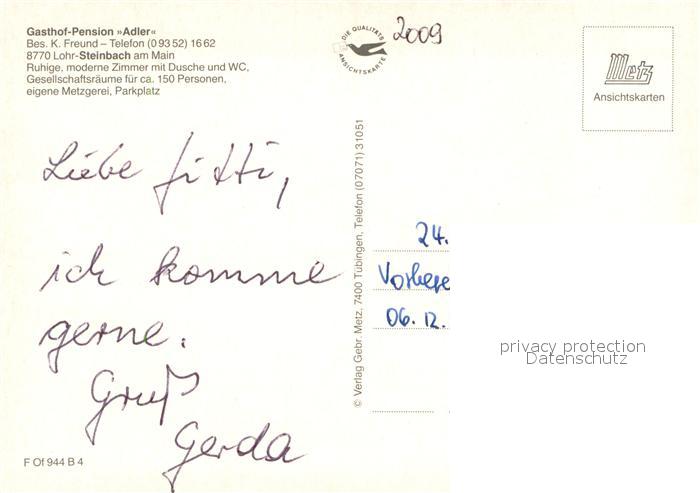 Gasthof-Pension »Adler«
Bes. K. Freund – Telefon (0 93 52) 16 62
8770 Lohr-Steinbach am Main
Ruhige, moderne Zimmer mit Dusche und WC,
Gesellschaftsräume für ca. 150 Personen,
eigene Metzgerei, Parkplatz
DIE QUALITÄTS
ANSICHTSKARTE
2009
Metz
Ansichtskarten
Liebe Jitti,
ich komme
gerne.
Gruß
Gerda
F Of 944 B 4
© Verlag Gebr. Metz, 7400 Tübingen, Telefon (07071) 31051
24.
06.12.
privacy protection
Datenschutz